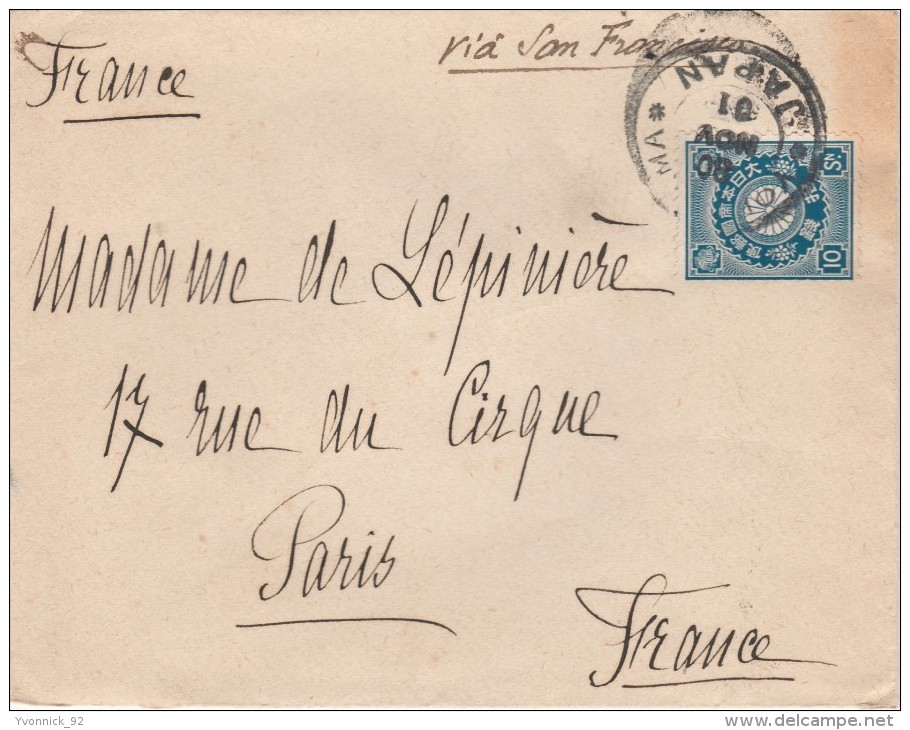 France
via San Francisco
JAPAN
MA
NOV
01
10 SN
大日本帝國郵便
Madame de Lépinière
17 rue du Cirque
Paris
France
Yvonnick_92
www.delcampe.net